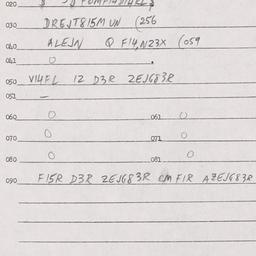 020
030 DREJT815M UN (256
040 ALEJN Q F14,N23X (059
041 O .
050 V14FL 12 D3R ZEJG83R
051 —
060 O 061 O
070 O 071 O
080 O 081 O
090 F15R D3R ZEJG83R CM F1R AZEJG83R